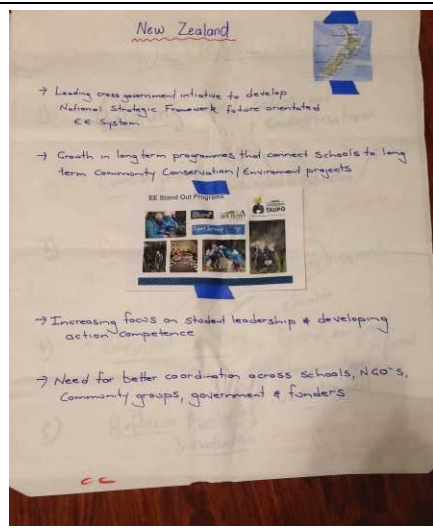 New Zealand
→ Leading cross government intiative to develop
National Strategic Framework future orientated
EE System
→ Growth in long term programmes that connect schools to long
term Community Conservation / Enviroment projects
EE Stand Out Programs
TAUPO
→ Increasing focus on student leadership & developing
action competence
→ Need for better coordination across schools, NGO's,
Community groups, government & funders